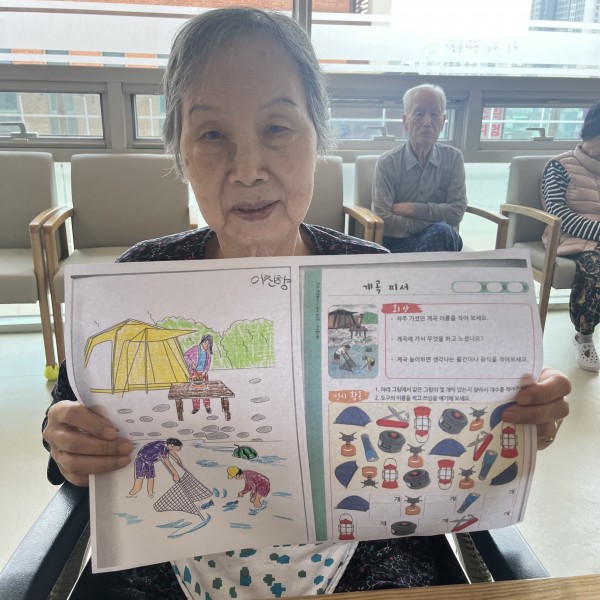 계곡 피서
회상
- 자주 가셨던 계곡 이름을 적어 보세요.
- 계곡에 가서 무엇을 하고 노셨나요?
- 계곡 놀이하면 생각나는 물건이나 음식을 적어보세요.
인지 활동
1. 아래 그림에서 같은 그림이 몇 개씩 있는지 찾아서 개수를 적어
2. 도구의 이름을 적고 쓰임을 얘기해 보세요.
개 개 개